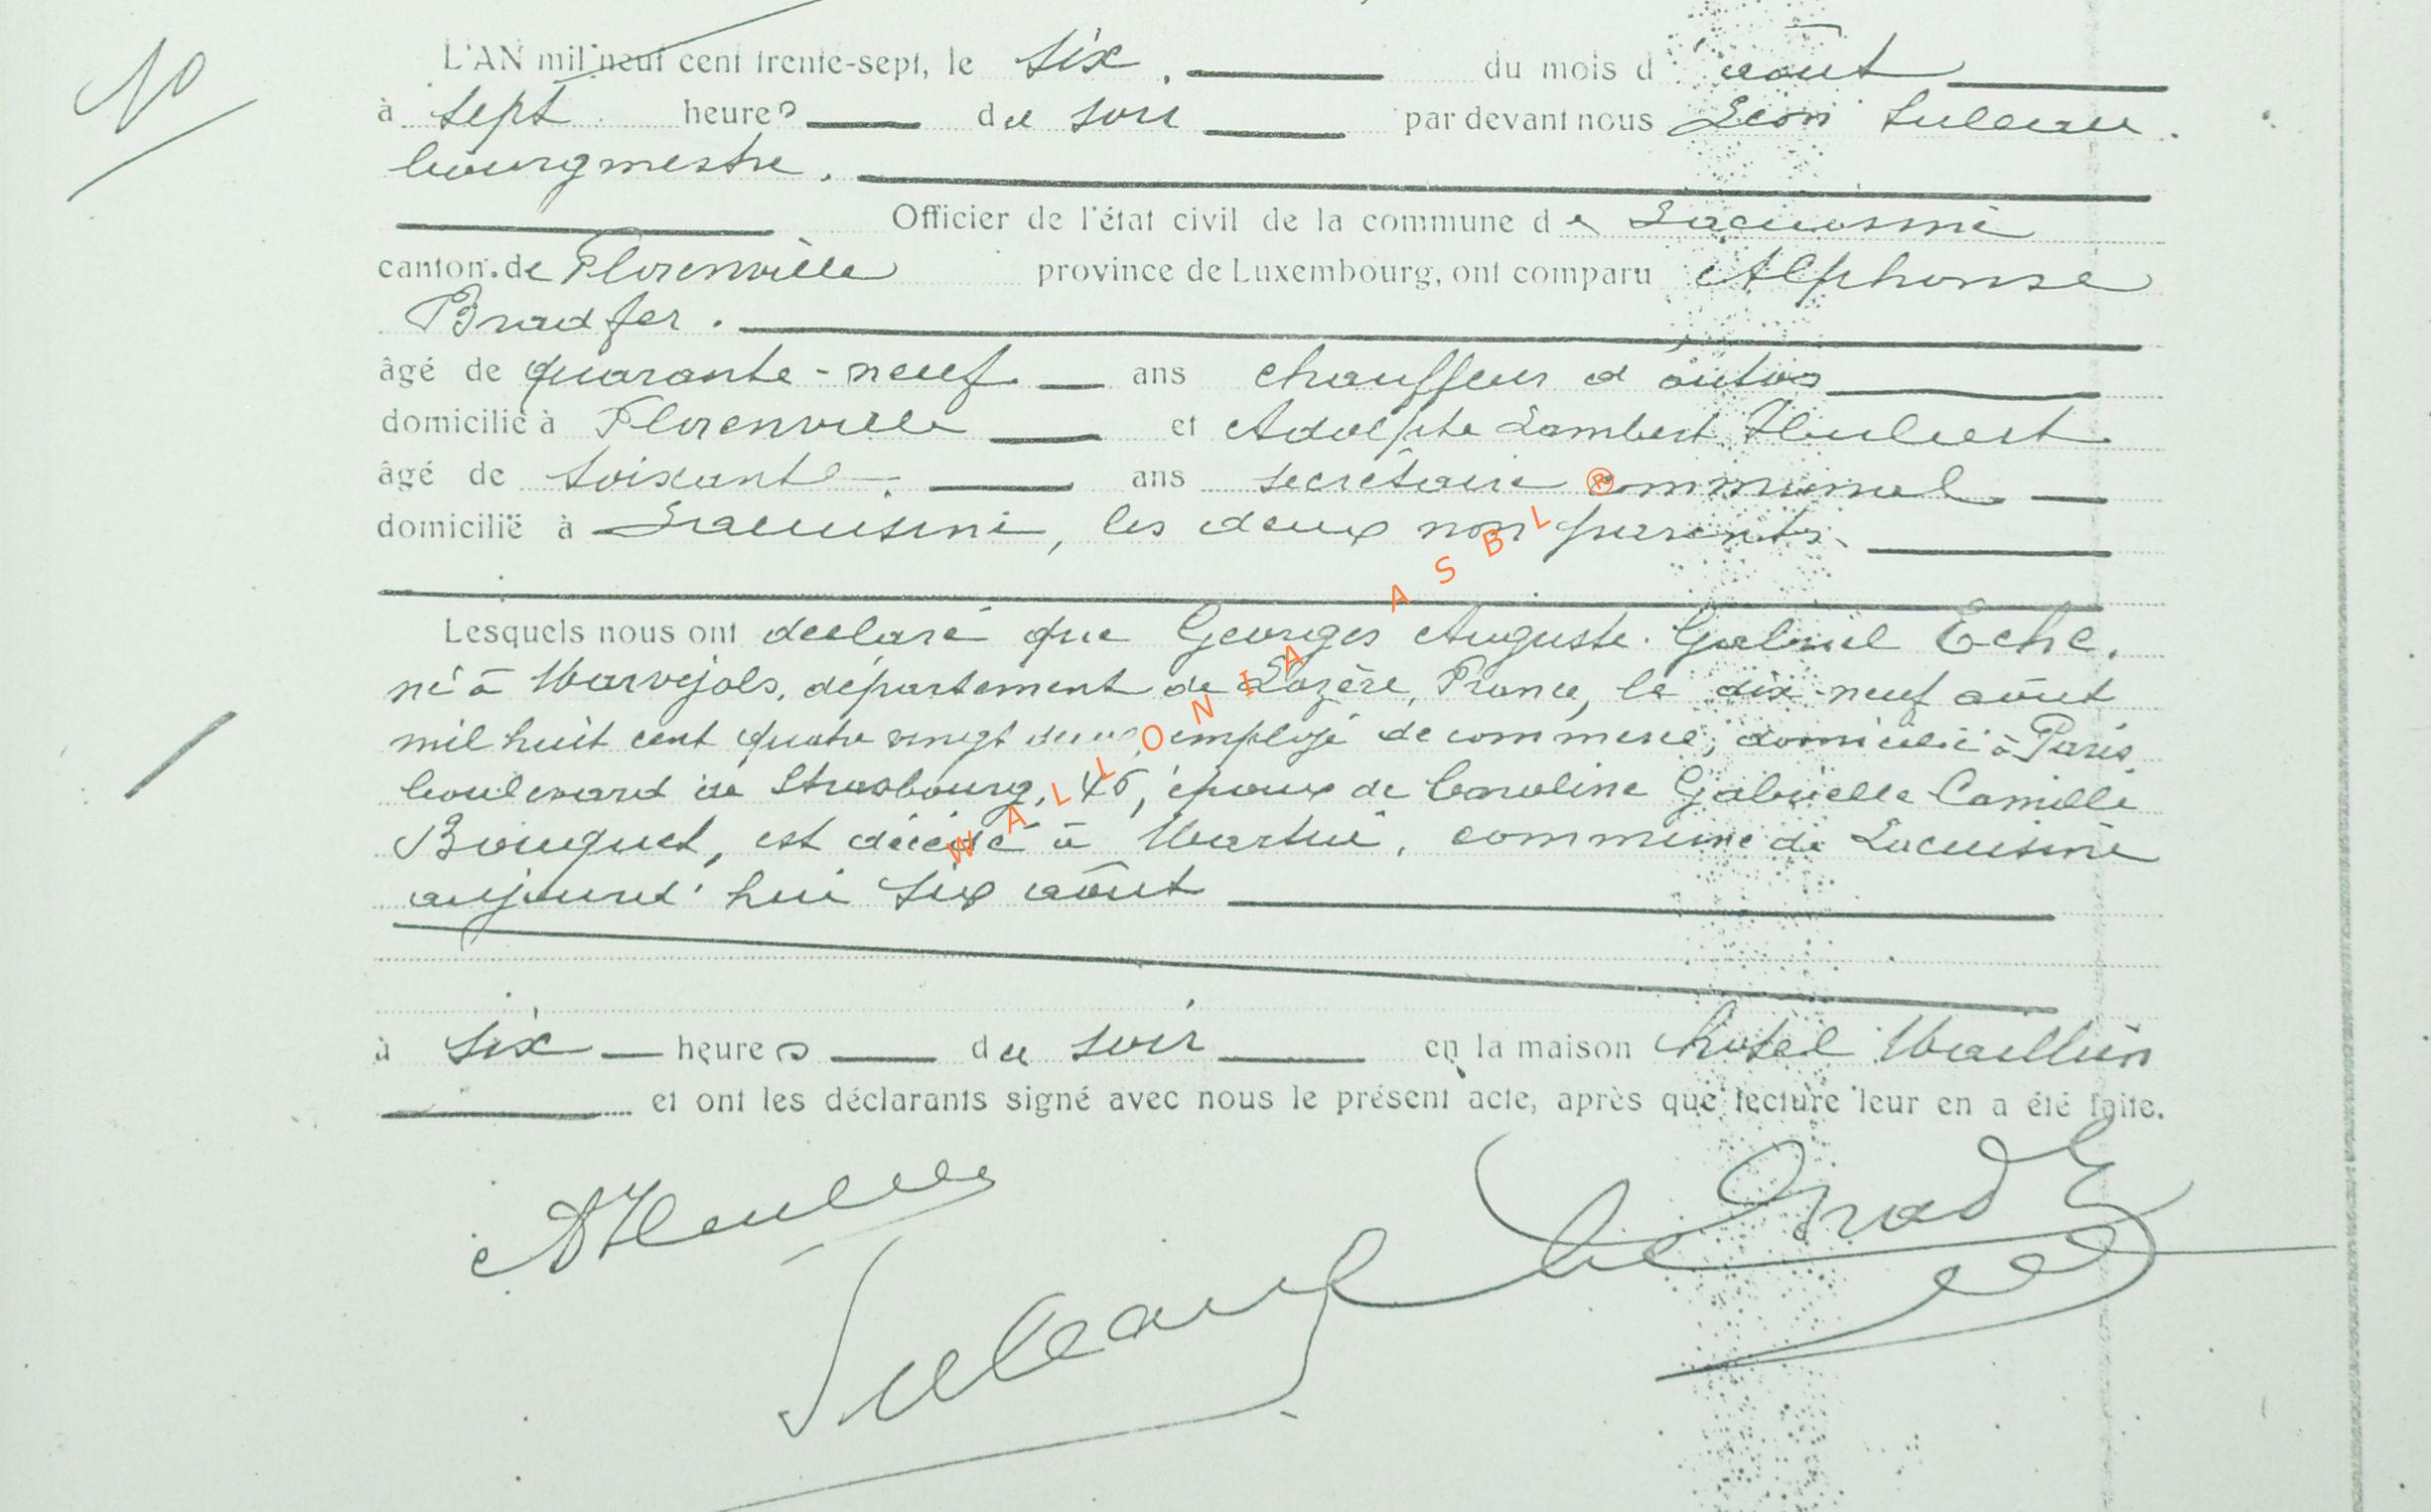 L'AN mil neuf cent trente-sept, le six, du mois d'août
à sept heures du soir par devant nous Léon Suleau.
bourgmestre.
Officier de l'état civil de la commune de Lacuisine
canton de Florenville province de Luxembourg, ont comparu Alphonse
Bradfer.
âgé de quarante-neuf ans chauffeur d'autos
domicilié à Florenville et Adolphe Lambert Heulert
âgé de soixante ans secrétaire communal
domicilié à Lacuisine, les deux non parents.
Lesquels nous ont déclaré que Georges Auguste Gabriel Eche,
né à Marvejols, département de Lozère, France, le dix-neuf août
mil huit cent quatre vingt employé de commerce, domicilié à Paris
boulevard de Strasbourg, époux de Caroline Gabrielle Camille
Bouquet, est décédé à Martué, commune de Lacuisine
aujourd'hui six août
à six heures du soir en la maison hôtel Maillien
et ont les déclarants signé avec nous le présent acte, après que lecture leur en a été faite.
Suleau
WALLONIA ASBL ®